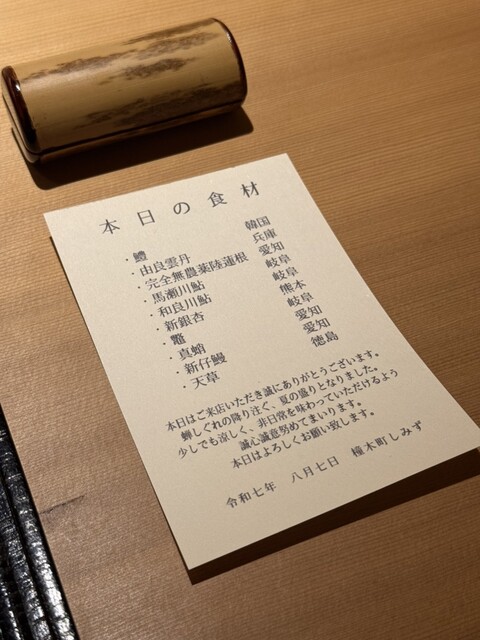 本日の食材
・鱧 韓国
・由良雲丹 兵庫
・完全無農薬陸蓮根 愛知
・馬瀬川鮎 岐阜
・和良川鮎 岐阜
・新銀杏 熊本
・鼈 岐阜
・真蛸 愛知
・新仔鰻 愛知
・天草 徳島
本日はご来店いただき誠にありがとうございます。
蝉しぐれの降り注ぐ、夏の盛りとなりました。
少しでも涼しく、非日常を味わっていただけるよう
誠心誠意努めてまいります。
本日はよろしくお願い致します。
令和七年 八月七日 橦木町しみず